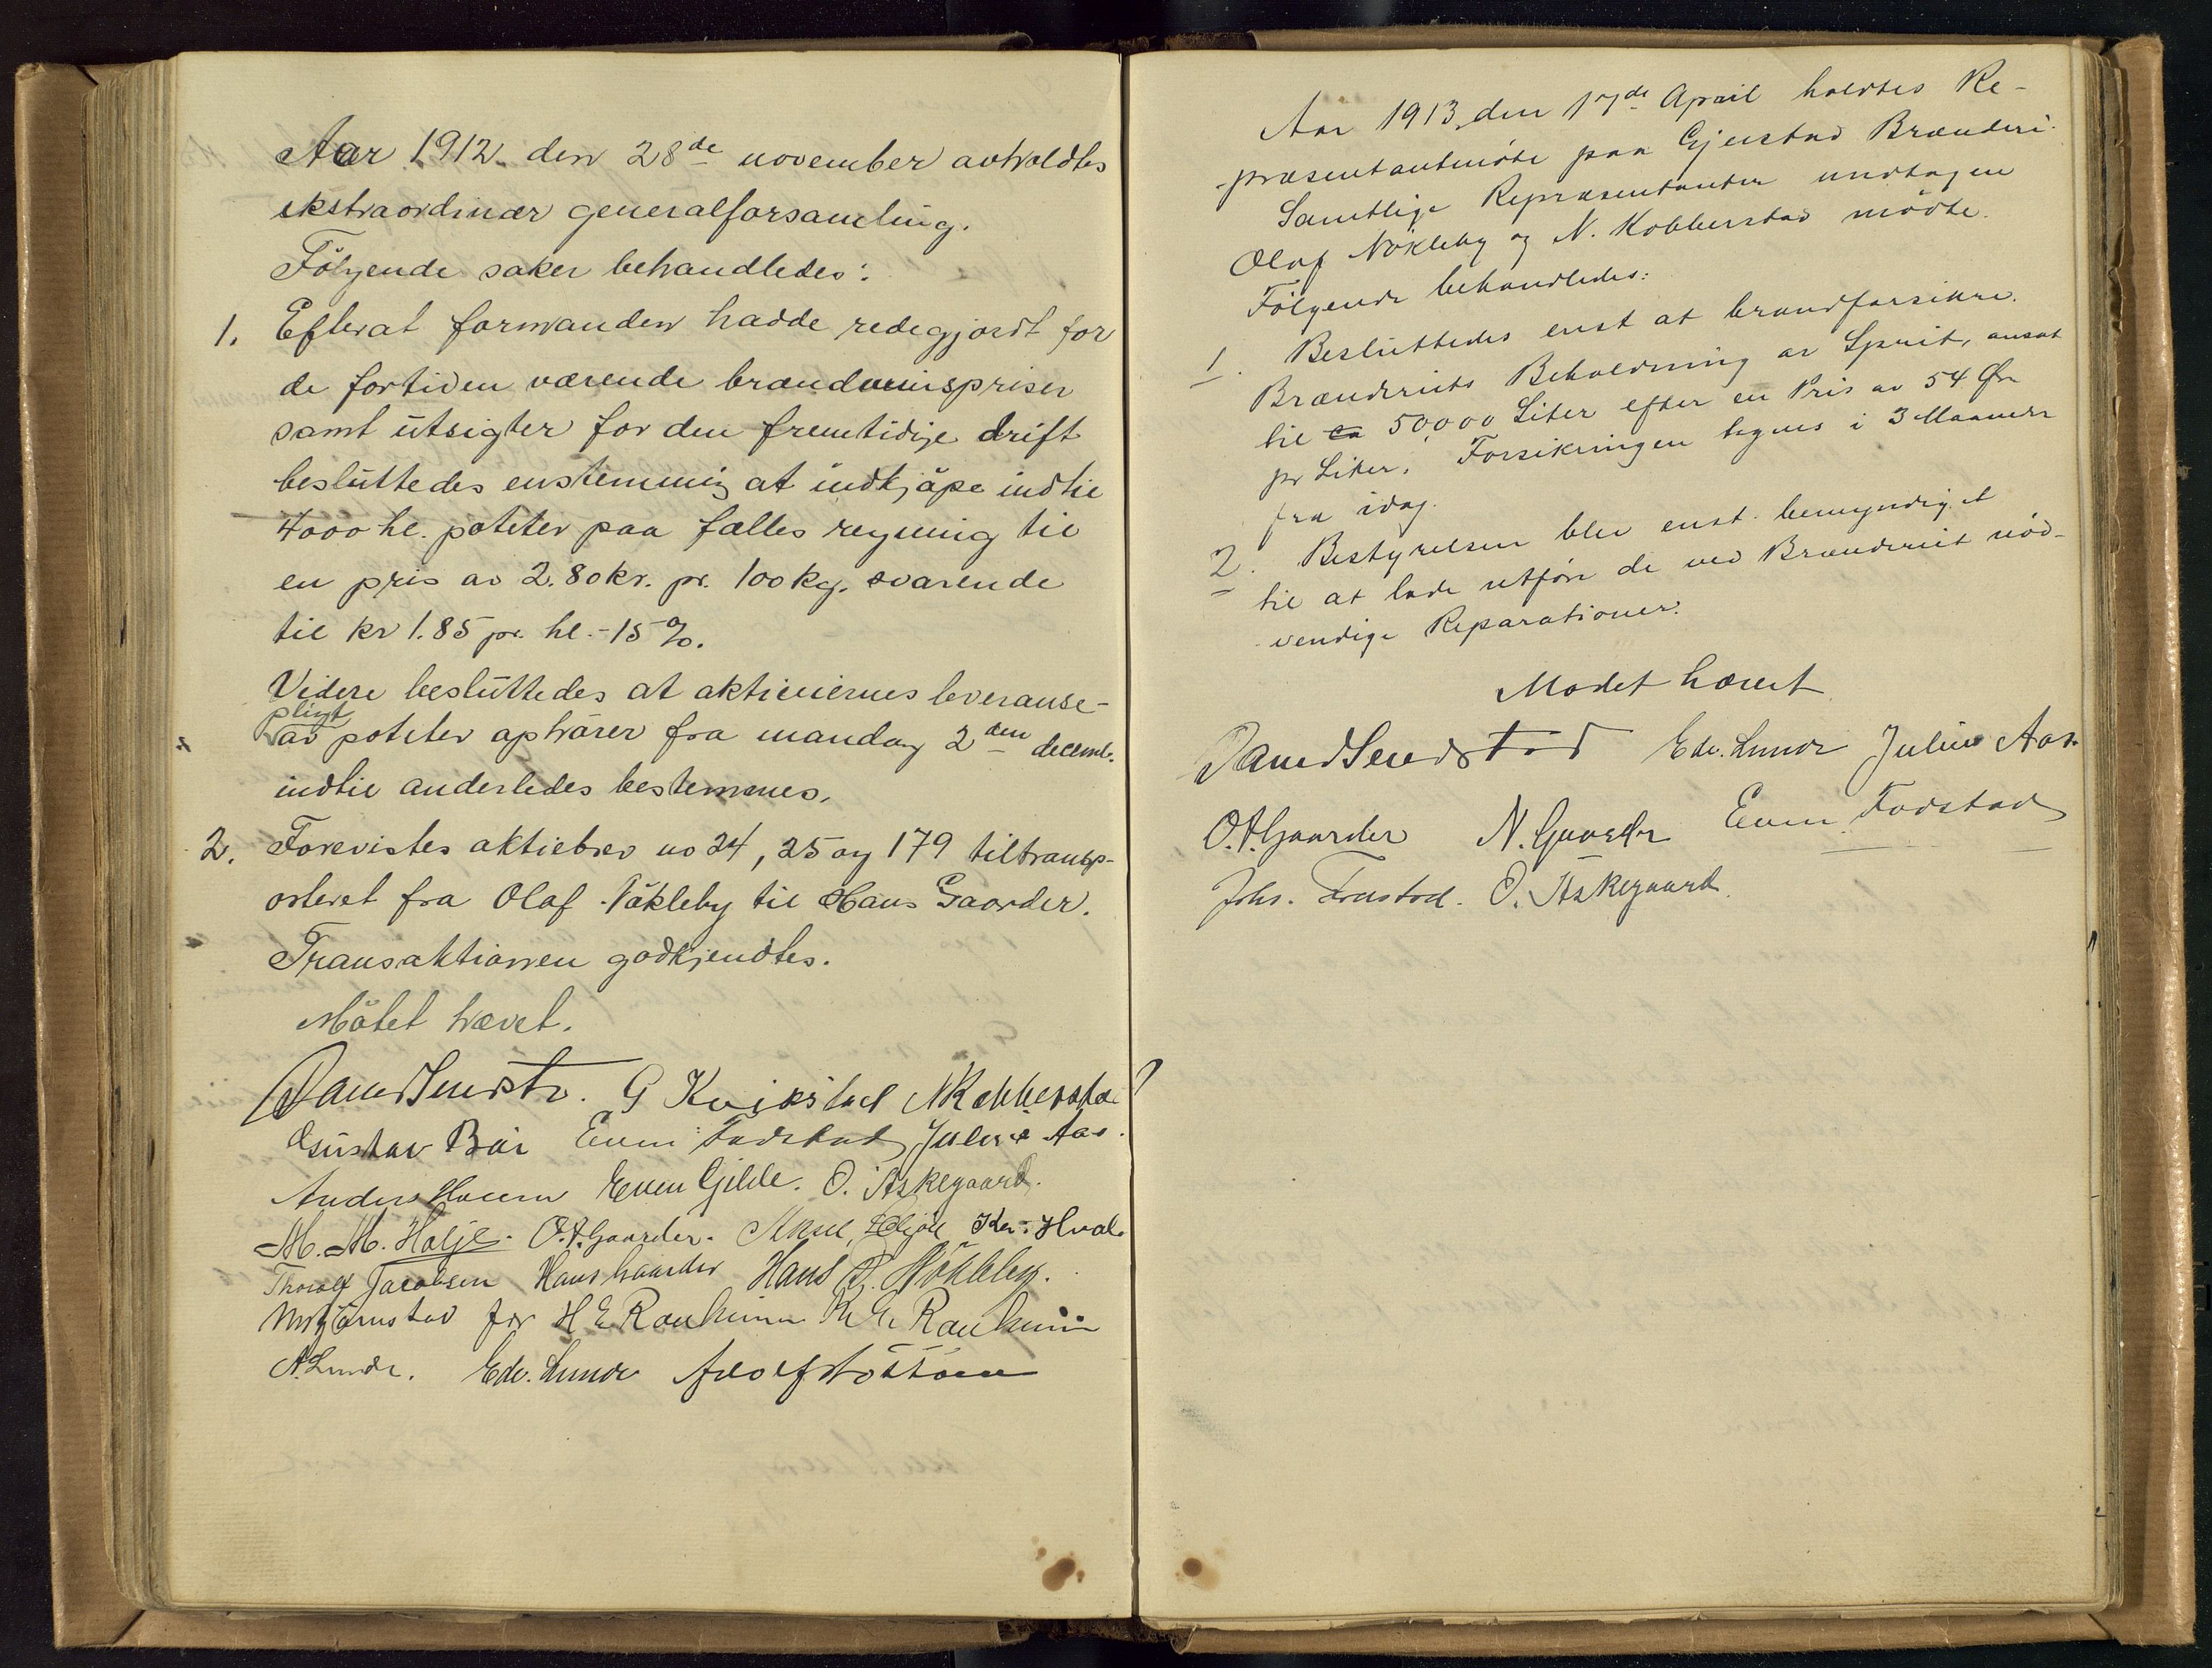 Aar 1912 den 28de november avholdtes
ekstraordinær generalforsamling.
Følgende saker behandledes:
1. Efterat formanden hadde redegjordt for
de fortiden værende brændevinspriser
samt utsigter for den fremtidige drift
besluttedes enstemmig at indkjøpe indtil
4000 hl. poteter paa fælles regning til
en pris av 2.80 kr. pr. 100 kg. svarende
til kr 1.85 pr. hl. - 15 %.
Videre besluttedes at aktieiernes leveranse-
pligt
av poteter ophører fra mandag 2den decemb.
indtil anderledes bestemmes.
2. Forevistes aktiebrev no 24, 25 og 179 tiltransp-
orteret fra Olaf Nøkleby til Hans Gaarder.
Transaktionen godkjendtes.
Møtet hævet.
G Kvikstad N Kobberstad
Gustav Bøi Even Fodstad Julius Aas.
Anders Even Gihle. O. Askegaard.
M. M. Halje. O. A. Gaarder. Kr. Hval
Thorolf Jacobsen Hans Gaarder Hans P. Nökleby.
for H E Rauhum K. E. Rauhum
A. Lunde. Edv. Lunde Adolf
Aar 1913 den 17de April holdtes Re-
-præsentantmöte paa Gjenstad Brænderi.
Samtlige Repræsentanter undtagen
Olaf Nökleby og N. Kobberstad mödte.
Fölgende behandledes:
1. Besluttedes enst at brandforsikre.
Brænderiets Beholdning av Sprit, ansat
til ca 50,000 Liter efter en Pris av 54 Øre
pr Liter. Forsikringen tegnes i 3 Maaneder
fra idag.
2. Bestyrelsen blev enst. bemyndiget
til at lade utföre de ved Brænderiet nöd-
-vendige Reparationer.
Mødet hævet
Edv. Lunde Julius Aas.
O. A. Gaarder N. Gaarder Even Fodstad
Johs. O. Askegaard.